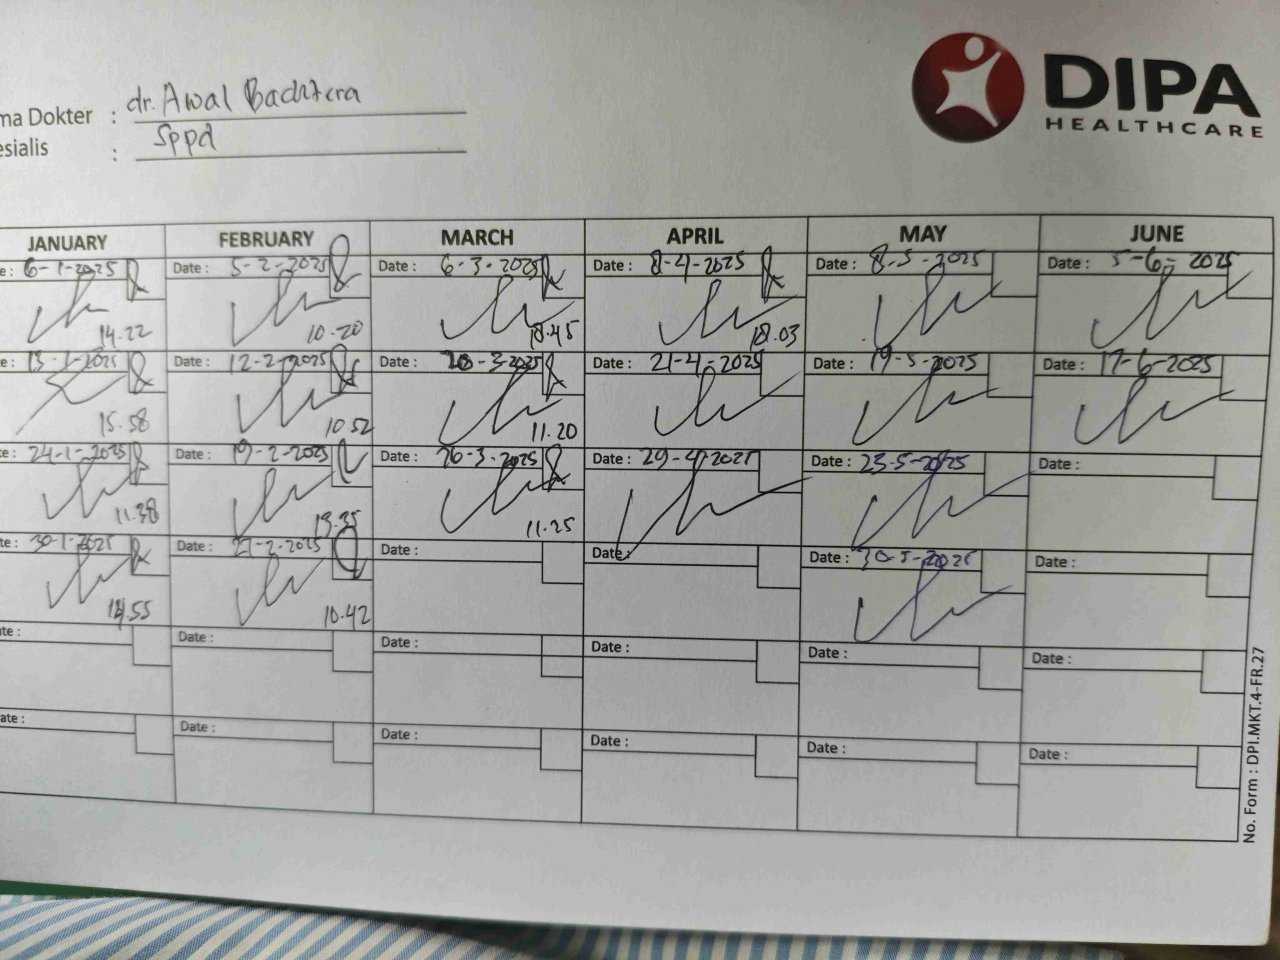 DIPA
HEALTHCARE
ma Dokter : dr. Awal Bachtera
esialis : Sppd
JANUARY FEBRUARY MARCH APRIL MAY JUNE
e : 6-1-2025 Date : 5-2-2025 Date : 6-3-2025 Date : 8-4-2025 Date : 8-5-2025 Date : 5-6-2025
14.22 10.20 18.45 18.03
e : 13-1-2025 Date : 12-2-2025 Date : 20-3-2025 Date : 21-4-2025 Date : 19-5-2025 Date : 17-6-2025
15.58 10.52 11.20
te : 24-1-2025 Date : 19-2-2025 Date : 26-3-2025 Date : 29-4-2025 Date : 23-5-2025 Date :
11.38 13.35 11.25
te : 30-1-2025 Date : 27-2-2025 Date : Date : Date : 30-5-2025 Date :
14.55 10.42
te : Date : Date : Date : Date : Date :
ate : Date : Date : Date : Date : Date :
No. Form : DPI.MKT.4-FR.27